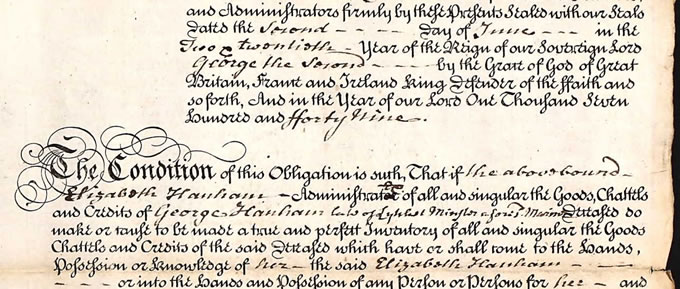 and Administrators firmly by these Presents Sealed with our Seals
Dated the Second - - - - Day of June - - - in the
Two & twentieth - Year of the Reign of our Sovereign Lord
George the Second - - - - by the Grace of God of Great
Britain, France and Ireland King Defender of the Ffaith and
so forth, And in the Year of our Lord One Thousand Seven
Hundred and fforty Nine.
The Condition of this Obligation is such, That if the above bound -
Elizabeth Hanham - Administratrix of all and singular the Goods, Chattels
and Credits of George Hanham late of Lytchet Minster a fores.d Deceased do
make or cause to be made a true and perfect Inventory of all and singular the Goods
Chattels and Credits of the said Deceased which have or shall come to the Hands,
Possession or Knowledge of her - the said Elizabeth Hanham - - -
- - - - or into the Hands and Possession of any Person or Persons for her - and